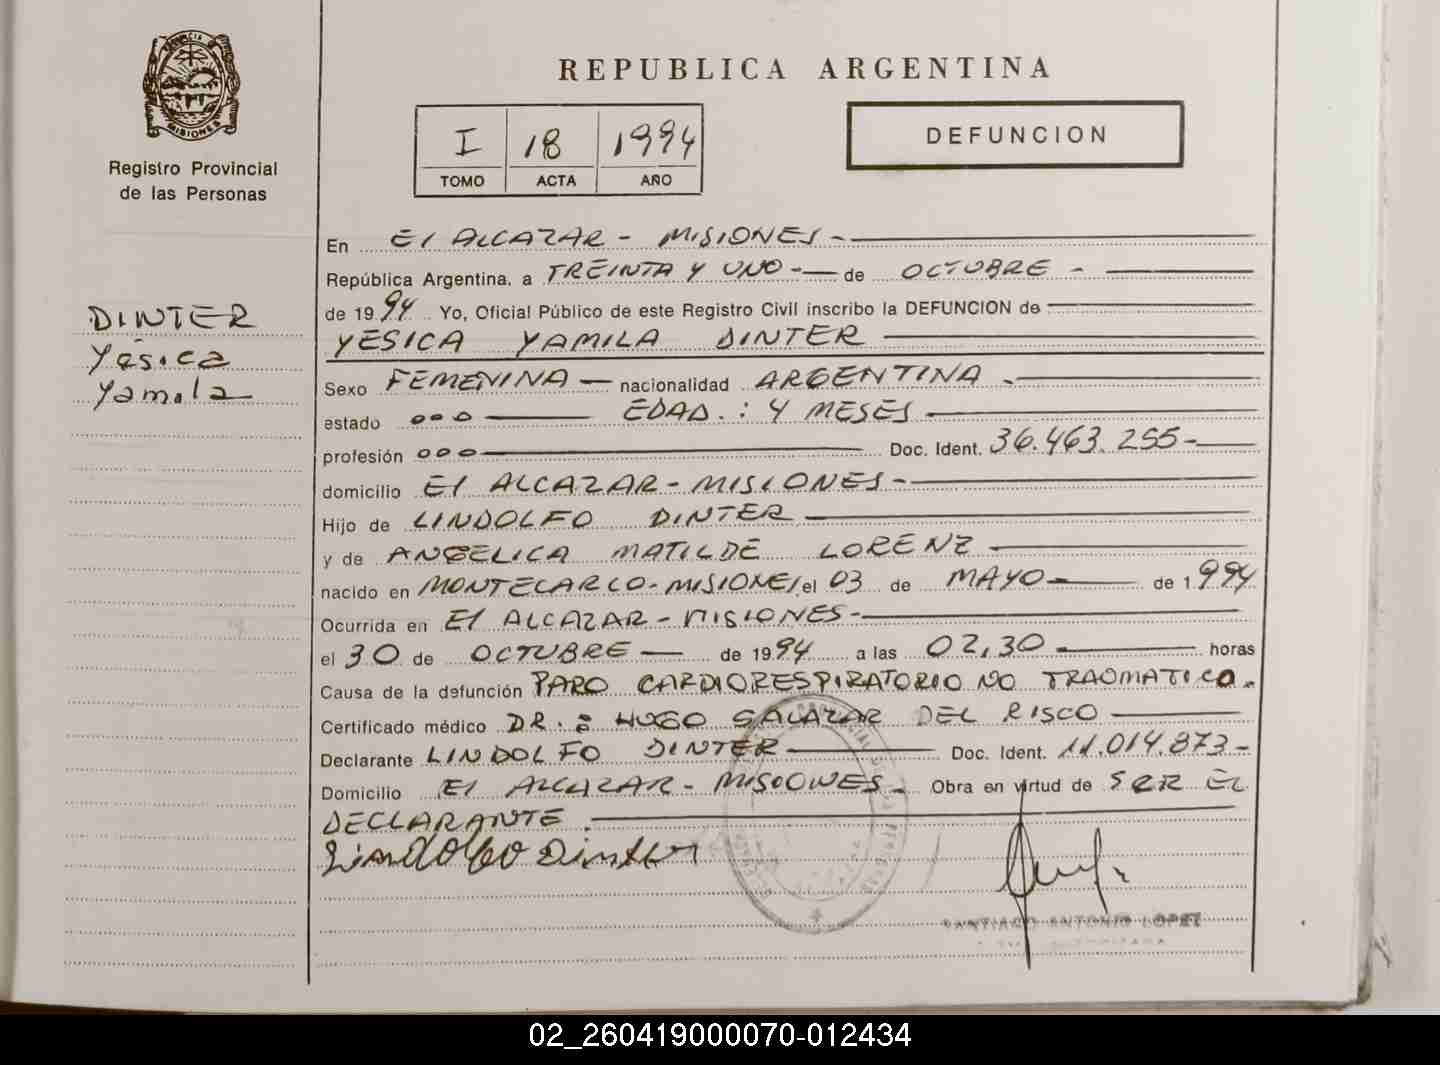 PROVINCIA
MISIONES
Registro Provincial
de las Personas
REPUBLICA ARGENTINA
I 18 1994
TOMO ACTA AÑO
DEFUNCION
DINTER
Yésica
Yamila
En El ALCAZAR - MISIONES -
República Argentina, a TREINTA Y UNO - de OCTUBRE -
de 1994 Yo, Oficial Público de este Registro Civil inscribo la DEFUNCION de
YESICA YAMILA DINTER
Sexo FEMENINA - nacionalidad ARGENTINA .
estado ooo EDAD.: 4 MESES
profesión ooo Doc. Ident. 36.463.255-
domicilio El ALCAZAR - MISIONES -
Hijo de LINDOLFO DINTER
y de ANGELICA MATILDE LORENZ
nacido en MONTECARLO - MISIONES, el 03 de MAYO de 1.994
Ocurrida en El ALCAZAR - MISIONES -
el 30 de OCTUBRE de 1994 a las 02,30 horas
Causa de la defunción PARO CARDIORESPIRATORIO NO TRAOMATICO.
Certificado médico DR.: HUGO SALAZAR DEL RISCO
Declarante LINDOLFO DINTER Doc. Ident. 11.014.873-
Domicilio El ALCAZAR - MISIONES - Obra en virtud de SER EL
DECLARANTE .
Lindolfo Dinter
SANTIAGO ANTONIO LOPEZ
02_260419000070-012434